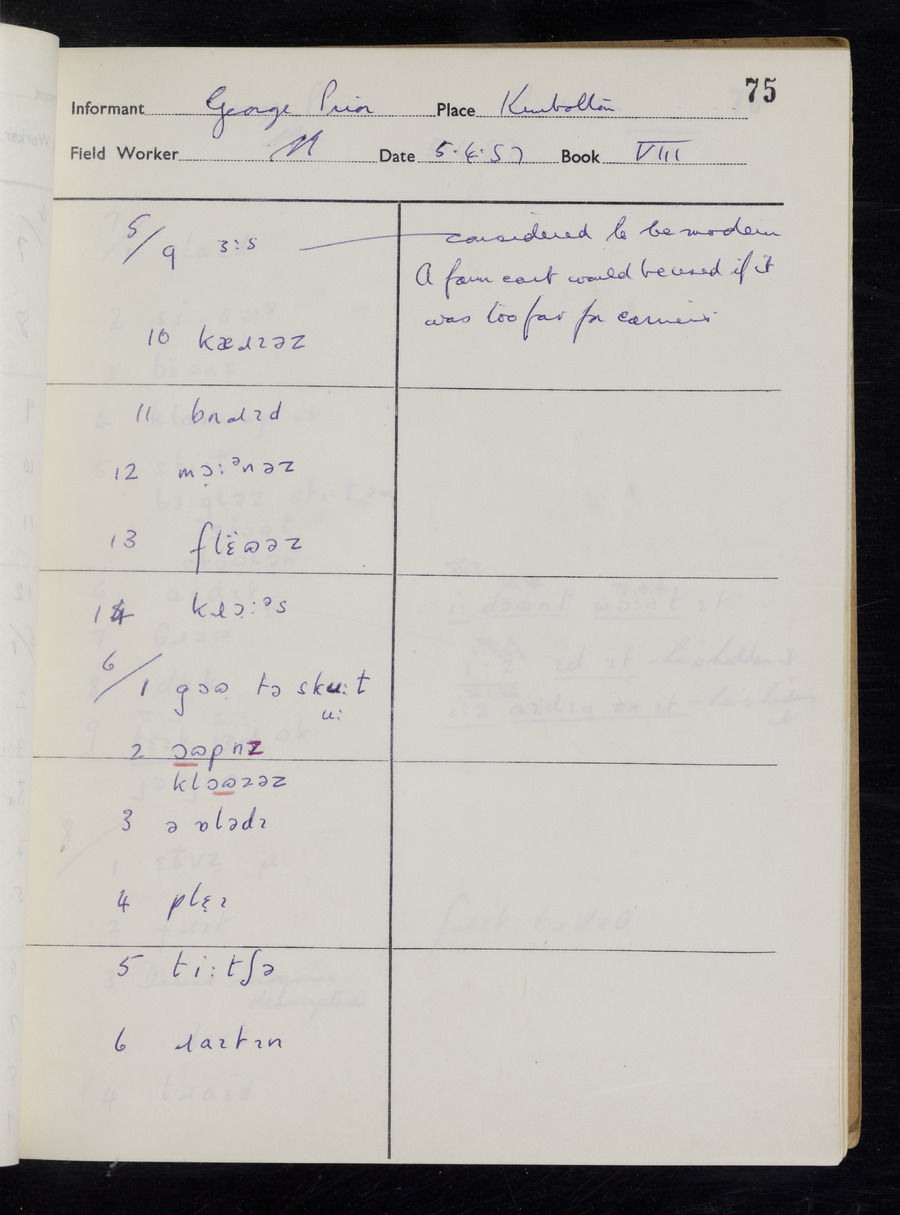 75
Informant George Prior Place Kimbolton
Field Worker Date 5.4.57 Book VIII
5/9 ɜːs considered to be modern
A farm cart would be used if it
was too far for carriers
10 kæɹɪəz
11 bɛɹɪd
12 mɔ̣ːᵊnəz
13 flë̞ɷəz
14 kɹɔːᵊs
6/1 gɔɷ tə skuːt
uː
2 ɔɷpnz
klɔɷzəz
3 ə ɒlədɪ
4 plɛ̣ɪ
5 tiːtʃə
6 ɹaɪtɪn